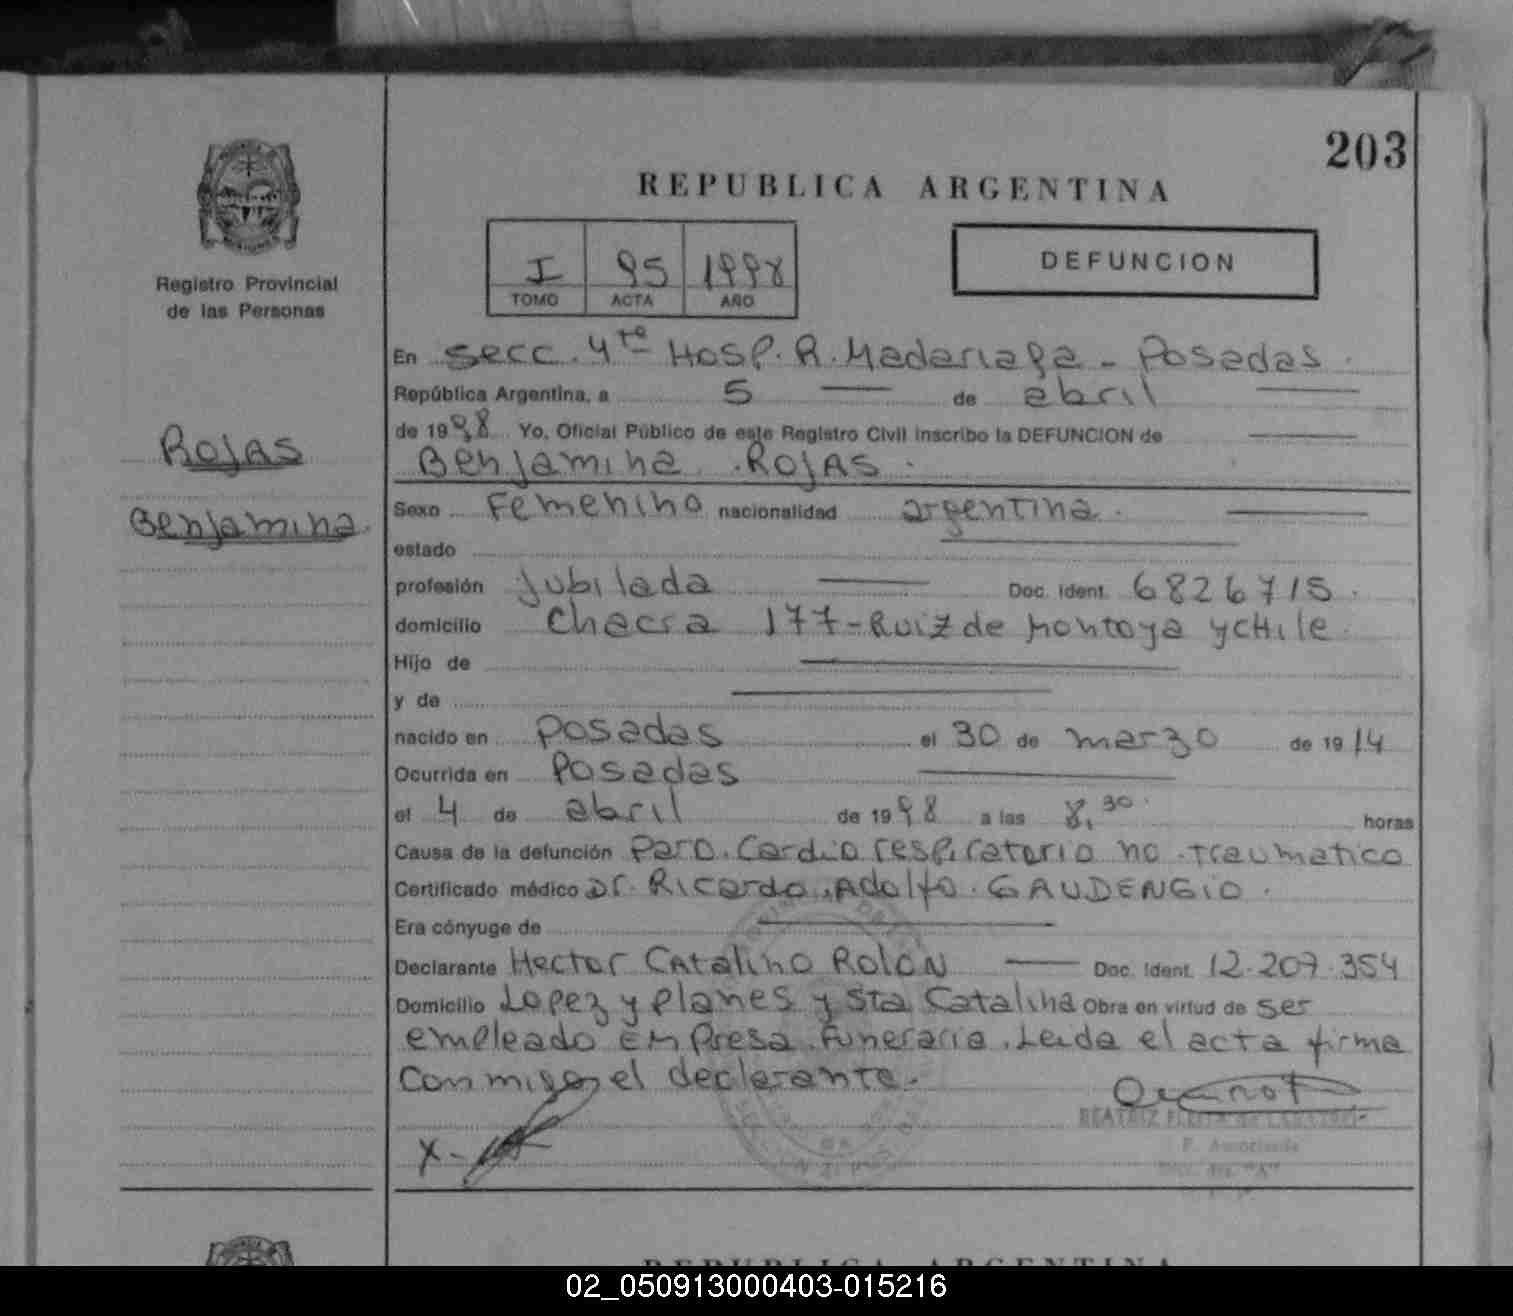 203
REPUBLICA ARGENTINA
Registro Provincial
de las Personas
I 95 1998
TOMO ACTA AÑO
DEFUNCION
Rojas
Benjamina.
En secc. 4ta Hosp. R. Madariaga - Posadas.
República Argentina, a 5 de abril
de 1998 Yo, Oficial Público de este Registro Civil inscribo la DEFUNCION de
Benjamina ROJAS.
Sexo Femenino nacionalidad argentina.
estado
profesión jubilada Doc. Ident. 6826715.
domicilio Chacra 177-Ruiz de Montoya y CHile.
Hijo de
y de
nacido en Posadas el 30 de marzo de 1914
Ocurrida en Posadas
el 4 de abril de 1998 a las 8,30 horas
Causa de la defunción Paro. Cardio respiratorio no traumatico
Certificado médico Dr. Ricardo Adolfo GAUDENGIO.
Era cónyuge de
Declarante Hector Catalino ROLON Doc. Ident. 12.207.354
Domicilio Lopez y planes y Sta Catalina Obra en virtud de ser
empleado Empresa Funeraria. Leida el acta firma
conmigo el declarante.
X-
BEATRIZ
REPUBLICA ARGENTINA
02_050913000403-015216